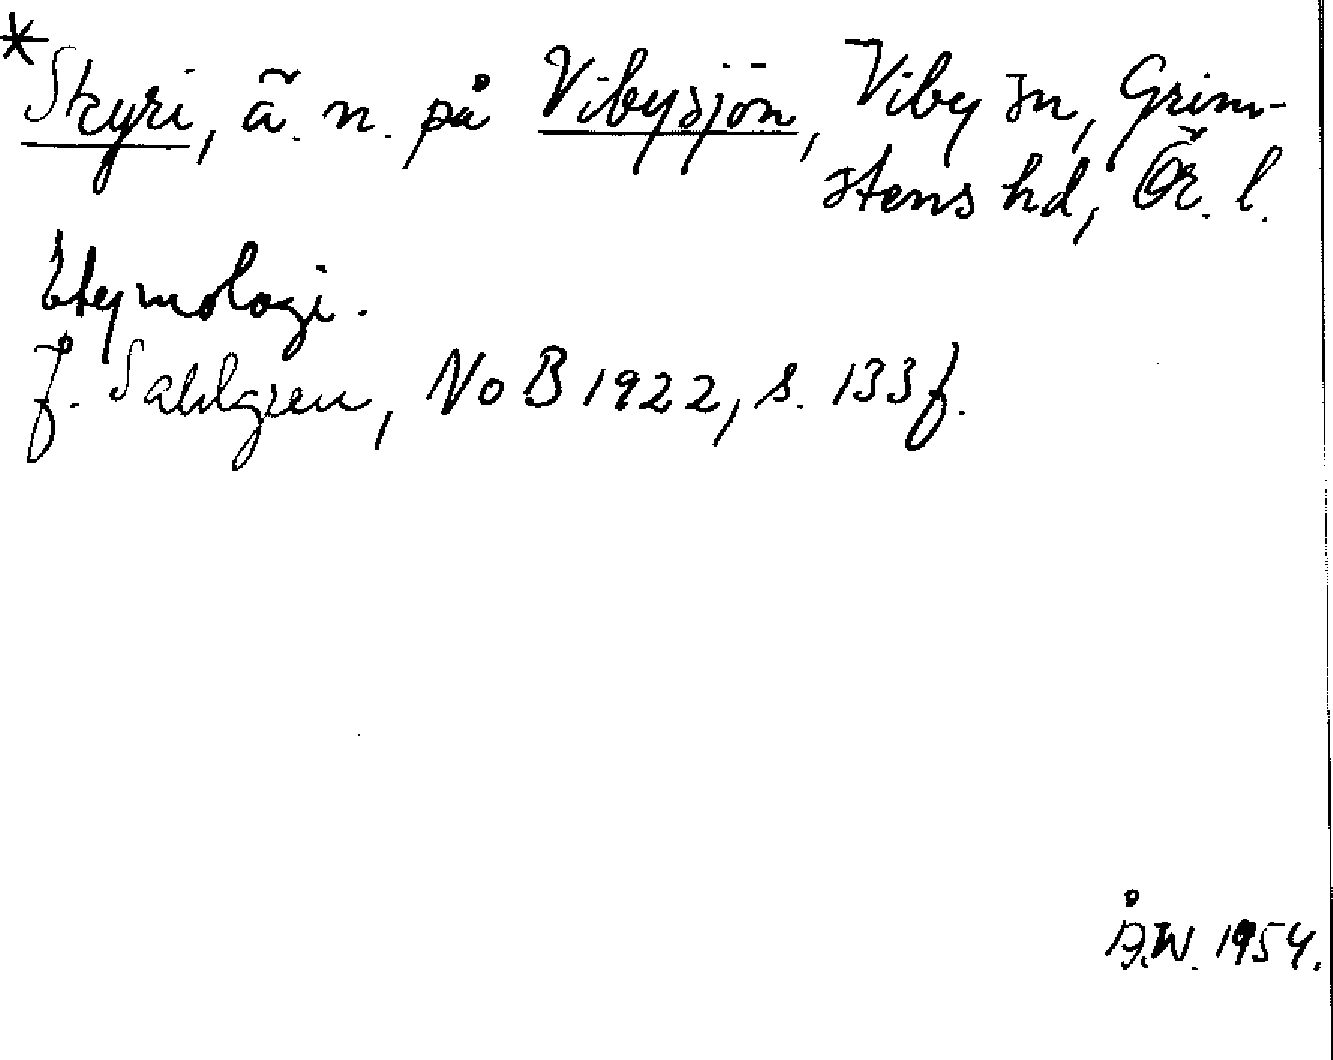 *Skyri, ä. n. på Vibysjön, Viby sn, Grim-
stens hd, Ör. l.
Etymologi.
J. Sahlgren, NoB 1922, s. 133 f.
Å.W. 1954.